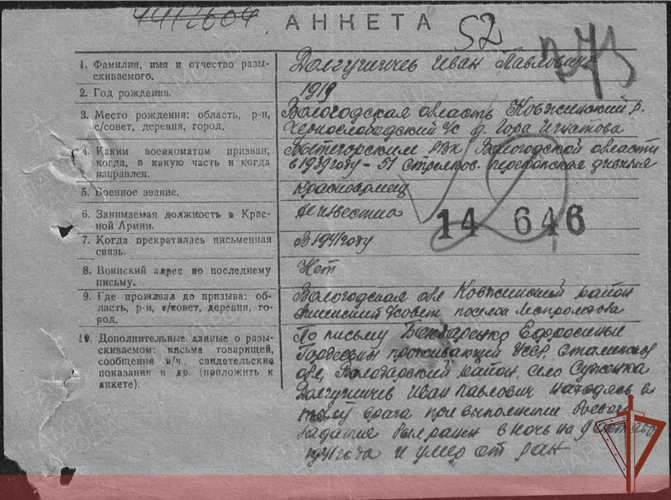 4412604
АНКЕТА
52
1. Фамилия, имя и отчество разы-
скиваемого.
Долгушичев Иван Павлович
2. Год рождения.
1919
3. Место рождения: область, р-н,
с/совет, деревня, город.
Вологодская область Ковжинский р.
Чернослободский с/с д. Гора Игнатова
4. Каким военкоматом призван,
когда, в какую часть и когда
направлен.
Вытегорским РВК Вологодской области
в 1939 году - 51 стрелков. перекопская дивизия
5. Военное звание.
Красноармеец
6. Занимаемая должность в Крас-
ной Армии.
Неизвестна
14 646
7. Когда прекратилась письменная
связь.
В 1941 году
8. Воинский адрес по последнему
письму.
Нет
9. Где проживал до призыва: об-
ласть, р-н, с/совет, деревня, го-
род.
Вологодская обл Ковжинский район
совет поселок
10. Дополнительные данные о разы-
скиваемом: письма товарищей,
сообщения в/ч., свидетельские
показания и др. (приложить к
анкете).
По письму Бондаренко Ефросинье
Гордеевны проживающий УССР, Сталинская
обл, Володарский район, село
Долгушичев Иван Павлович находясь в
тылу врага при выполнении боевого
задания был ранен в ночь на 9 октября
1941 года и умер от ран